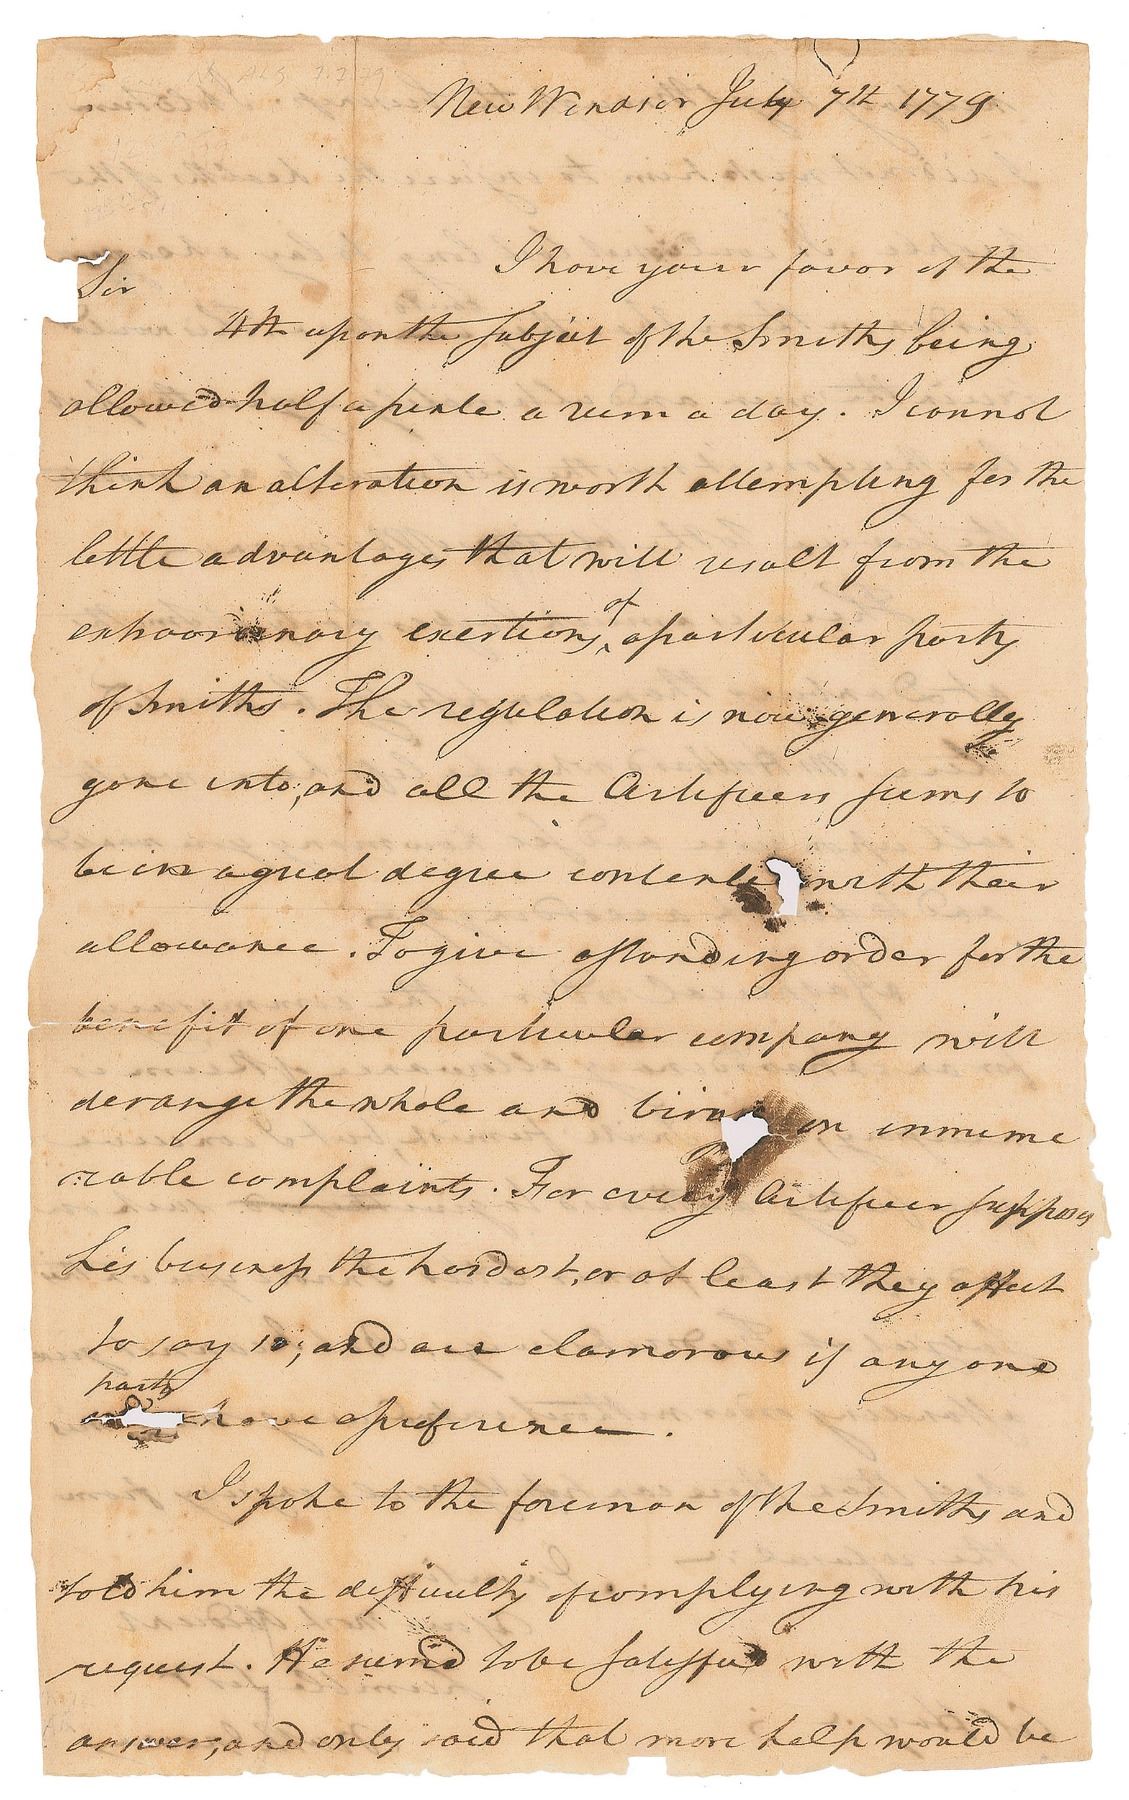 New Windsor July 7th 1779
I have your favor of the
Sir
4th upon the subject of the Smiths being
allowed half a pinte a rum a day. I cannot
think an alteration is worth attempting for the
little advantages that will result from the
extraordinary exertions of a particular party
of Smiths. The regulation is now generally
gone into, and all the Artificers seems to
be in a great degree contente with their
allowance. To give a standing order for the
benefit of one particular company will
derange the whole and bring on innume
rable complaints. For every Artificer supposes
his business the hardest, or at least they affect
to say so; and are clamorous if any one
party
have a preference.
I spoke to the foreman of the Smiths and
told him the difficulty of complying with his
request. He seemd to be satisfied with the
answer, and only said that more help would be